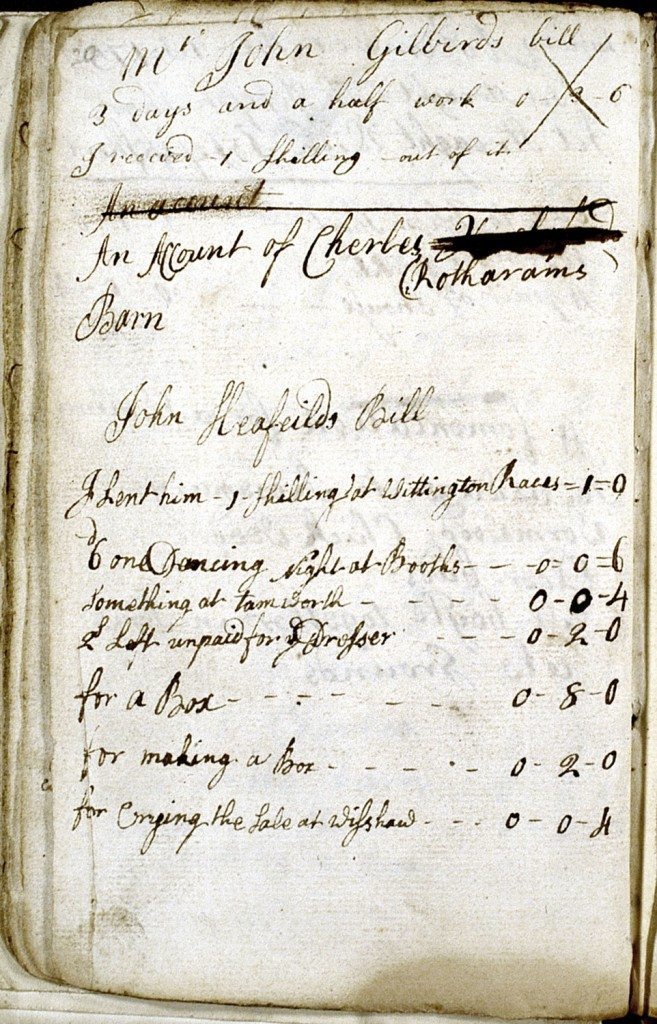 Mr John Gilbirds bill
3 days and a half work 0-3-6
I receved - 1 shilling - out of it
An account
An Account of Cherles
Rotharams
Barn
John Heafeilds Bill
I Lent him - 1 - shilling at Wittington Races = 1 = 0
6d one Dancing night at Booths - - 0 = 0 = 6
Something at tamworth - - - - - 0 - 0 - 4
2s Left unpaid for ye Dresser - - - 0 - 2 - 0
for a Box - - - - - - 0 - 8 - 0
for making a Box - - - - - - 0 - 2 - 0
for Crying the Sale at Wishaw - - - 0 - 0 - 4